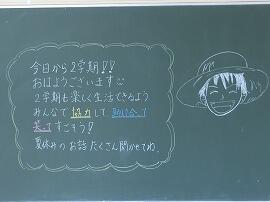 今日から2学期!!
おはようございます
2学期も楽しく生活できるよう
みんなで協力して助け合って
笑ってすごそう!
夏休みのお話たくさん聞かせてね。